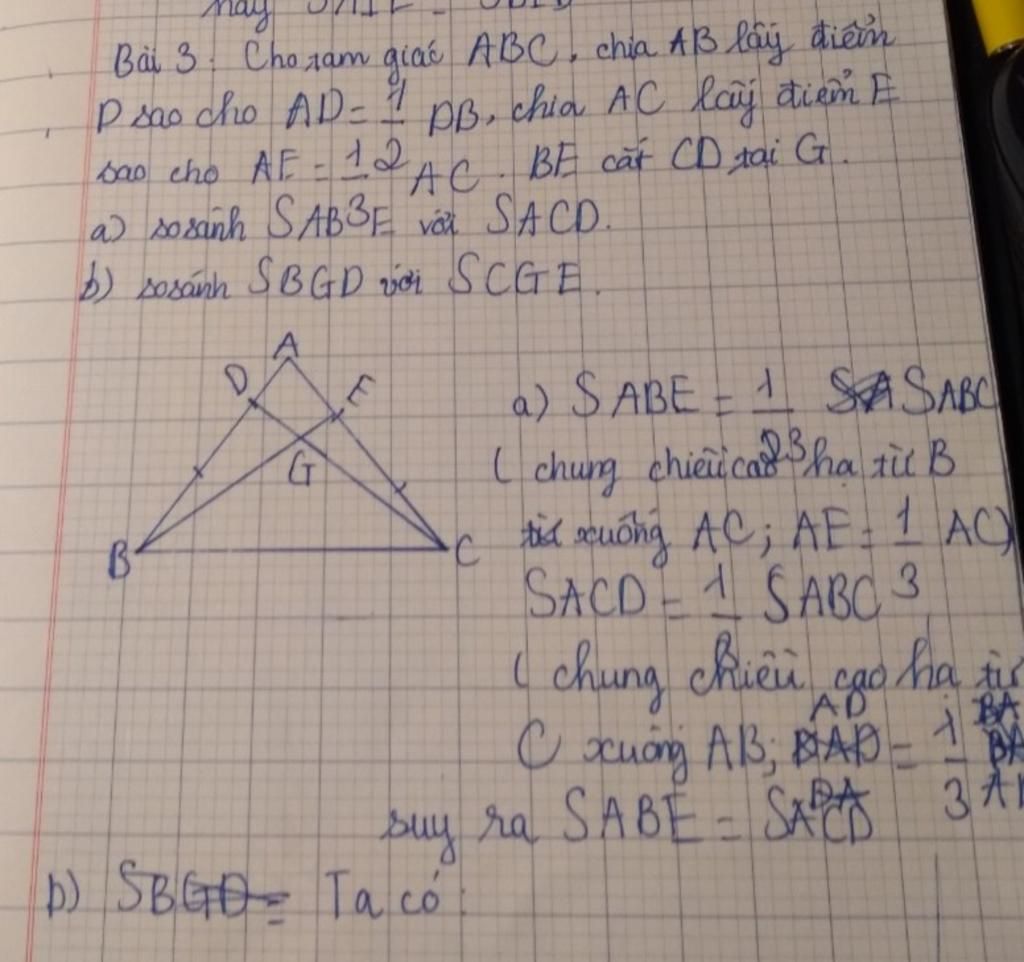 Bài 3: Cho tam giác ABC, chia AB lấy điểm
D sao cho AD = 1/2 DB, chia AC lấy điểm E
sao cho AE = 1/3 AC. BE cắt CD tại G.
a) so sánh SABE với SACD.
b) so sánh SBGD với SCGE.
A
D
E
G
B
C
a) SABE = 1/3 SABC
( chung chiều cao hạ từ B
xuống AC; AE = 1/3 AC)
SACD = 1/3 SABC
( chung chiều cao hạ từ
C xuống AB; AD = 1/3
suy ra SABE = SACD
b) SBGD = Ta có: